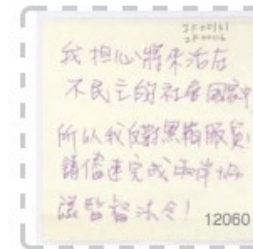 我担心將來活在
不民主的社會國家中
所以我反對黑箱服貿
請儘速完成兩岸協
議監督法令！
12060